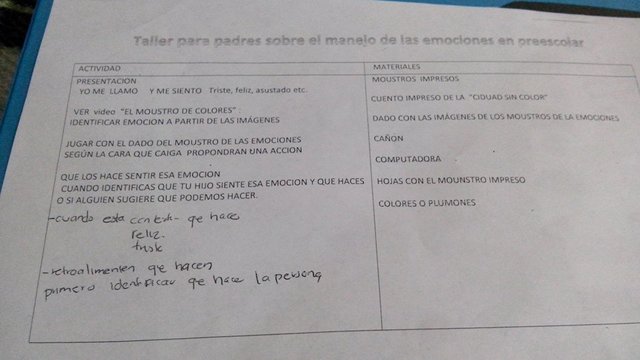 Taller para padres sobre el manejo de las emociones en preescolar
ACTIVIDAD
PRESENTACION
YO ME LLAMO Y ME SIENTO Triste, feliz, asustado etc.
VER video "EL MOUSTRO DE COLORES" :
IDENTIFICAR EMOCION A PARTIR DE LAS IMÁGENES
JUGAR CON EL DADO DEL MOUSTRO DE LAS EMOCIONES
SEGÚN LA CARA QUE CAIGA PROPONDRAN UNA ACCION
QUE LOS HACE SENTIR ESA EMOCION
CUANDO IDENTIFICAS QUE TU HIJO SIENTE ESA EMOCION Y QUE HACES
O SI ALGUIEN SUGIERE QUE PODEMOS HACER.
-cuando esta que hace
feliz.
triste
-retroalimenten que hacen
primero identificar que hace la persona
MATERIALES
MOUSTROS IMPRESOS
CUENTO IMPRESO DE LA "CIDUAD SIN COLOR"
DADO CON LAS IMÁGENES DE LOS MOUSTROS DE LA EMOCIONES
CAÑON
COMPUTADORA
HOJAS CON EL MOUNSTRO IMPRESO
COLORES O PLUMONES